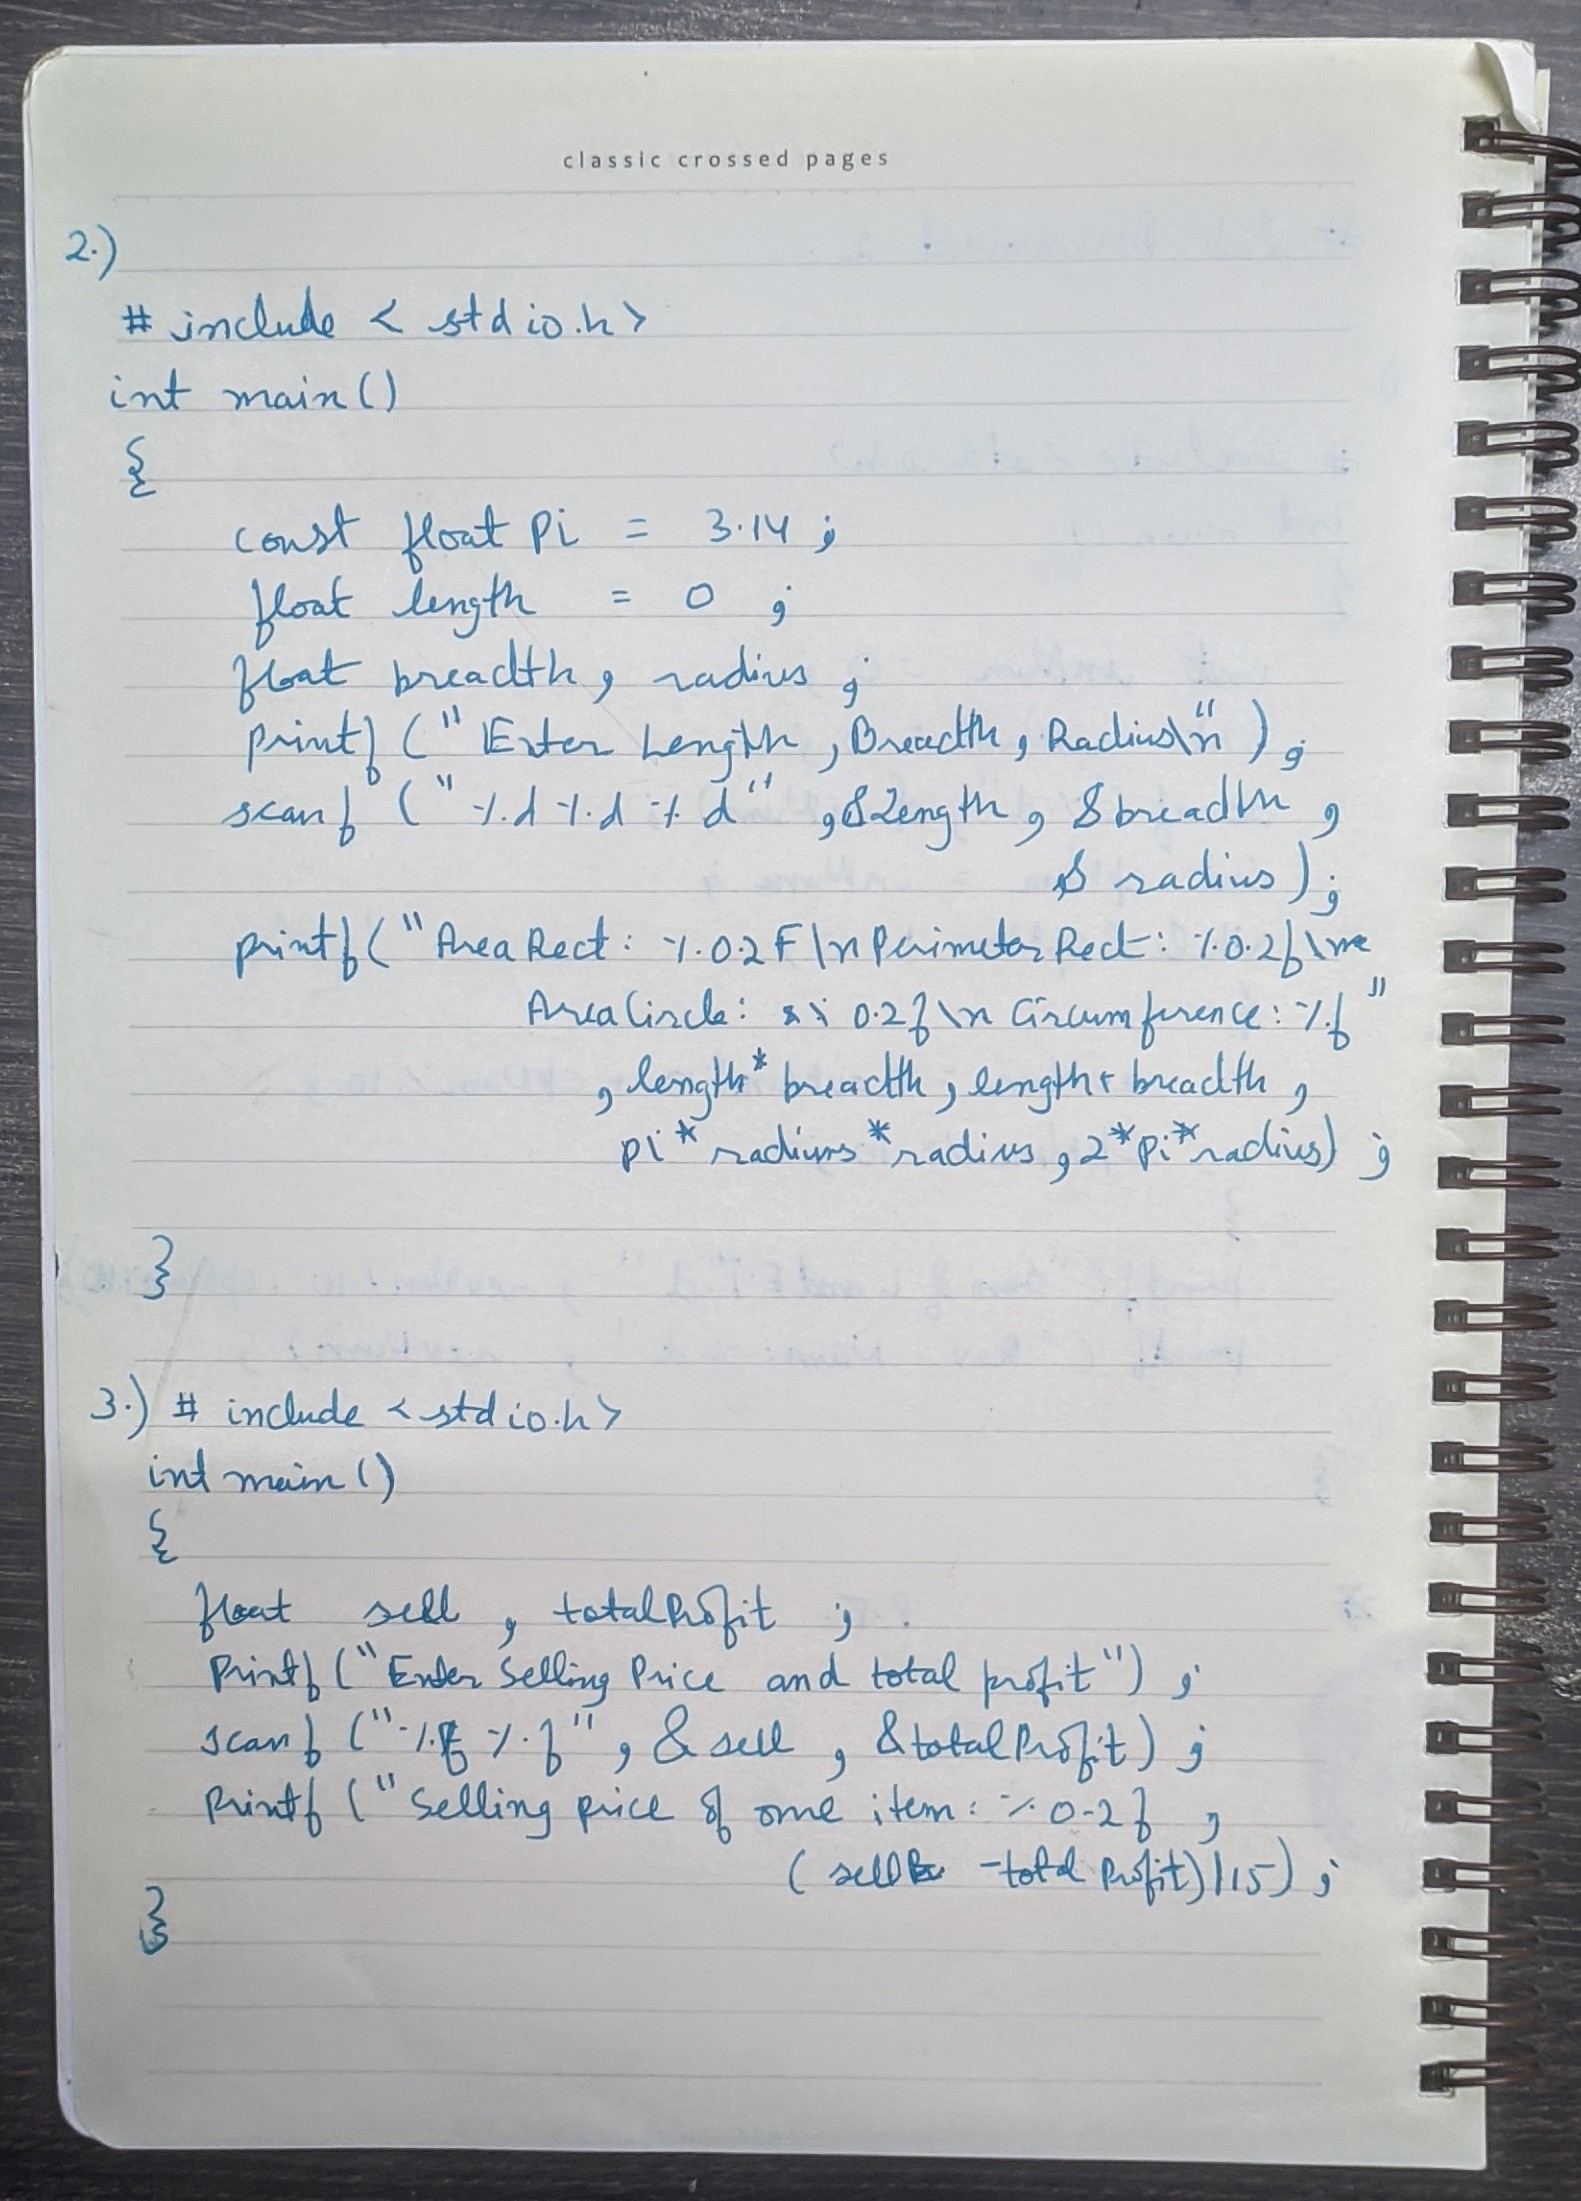 classic crossed pages
2.)
# include < stdio.h>
int main()
{
const float pi = 3.14 ;
float length = 0 ;
float breadth, radius ;
printf ("Enter Length, Breadth, Radius\n") ;
scanf ("%d %d %d", &length, &breadth,
& radius) ;
printf("AreaRect: %0.2F\nPerimeterRect: %0.2f\n
AreaCircle: % 0.2f\n Circumference: %f"
, length* breadth, length+ breadth,
pi* radius *radius, 2*pi*radius) ;
}
3.) # include <stdio.h>
int main()
{
float sell , totalProfit ;
Printf ("Enter Selling Price and total profit") ;
scanf ("%f %f", & sell , &totalProfit) ;
Printf ("Selling price of one item: % 0.2f ,
( sell -total Profit)/15) ;
}